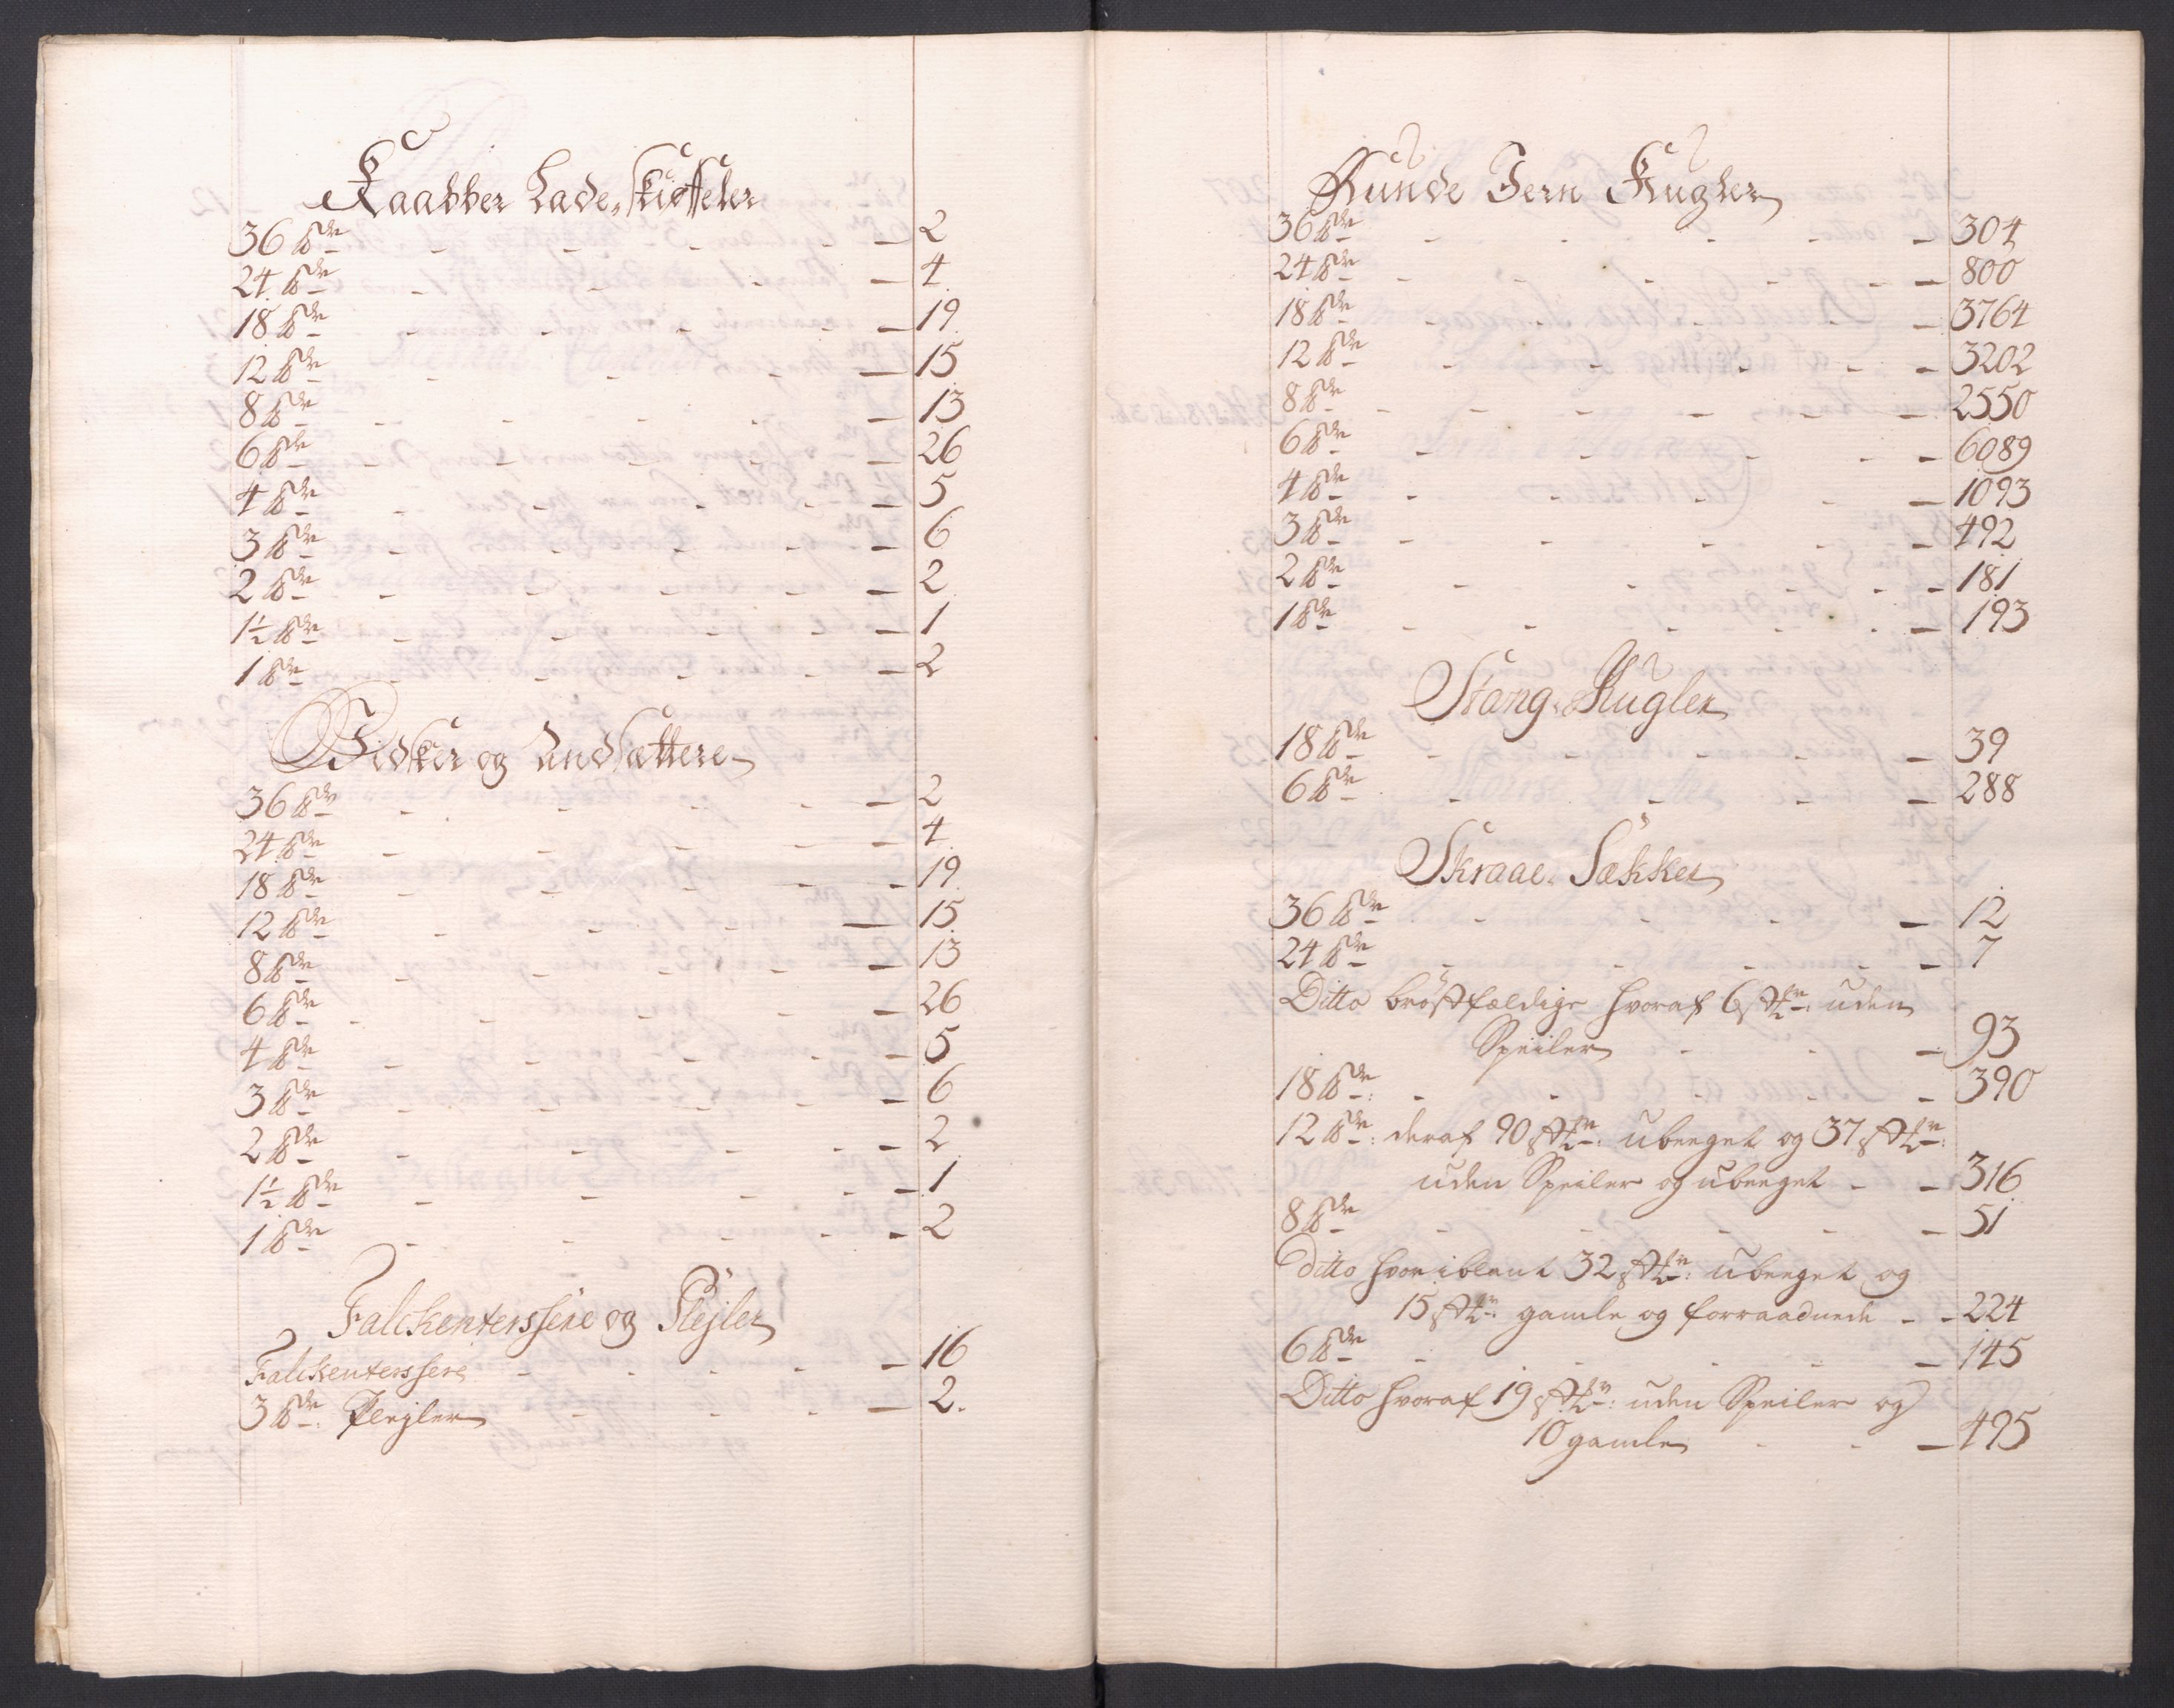 Kaabber Lade-Skioffeler
36 ℔de - - - - 2
24 ℔de - - - - 4
18 ℔de - - - - 19
12 ℔de - - - - 15
8 ℔de - - - - 13
6 ℔de - - - - 26
4 ℔de - - - - 5
3 ℔de - - - - 6
2 ℔de - - - - 2
1½ ℔de - - - - 1
1 ℔de - - - - 2
Vidsker og Andsættere
36 ℔de - - - - 2
24 ℔de - - - - 4
18 ℔de - - - - 19
12 ℔de - - - - 15
8 ℔de - - - - 13
6 ℔de - - - - 26
4 ℔de - - - - 5
3 ℔de - - - - 6
2 ℔de - - - - 2
1½ ℔de - - - - 1
1 ℔de - - - - 2
Falckenterssere og Plejler
Falckenterssere - - - - 16
3 ℔de: Plejler - - - - 2.
Runde Jern Kugler
36 ℔de - - - - 304
24 ℔de - - - - 800
18 ℔de - - - - 3764
12 ℔de - - - - 3202
8 ℔de - - - - 2550
6 ℔de - - - - 6089
4 ℔de - - - - 1093
3 ℔de - - - - 492
2 ℔de - - - - 181
1 ℔de - - - - 193
Stang-Kugler
18 ℔de - - - - 39
6 ℔de - - - - 288
Skraae-Sækker
36 ℔de - - - - 12
24 ℔de - - - - 7
Ditto brøstfældige hvoraf 6 stkr: uden
Speiler - - - 93
18 ℔de: - - - - 390
12 ℔de: deraf 90 stkr: ubeeget og 37 stkr:
uden Speiler og ubeeget - - 316
8 ℔de - - - - 51
Ditto hvoriblant 32 stkr: ubeeget og
15 stkr: gamle og forraadnede - - 224
6 ℔de - - - - 145
Ditto hvoraf 19 stkr: uden Speiler og
10 gamle - - - 495